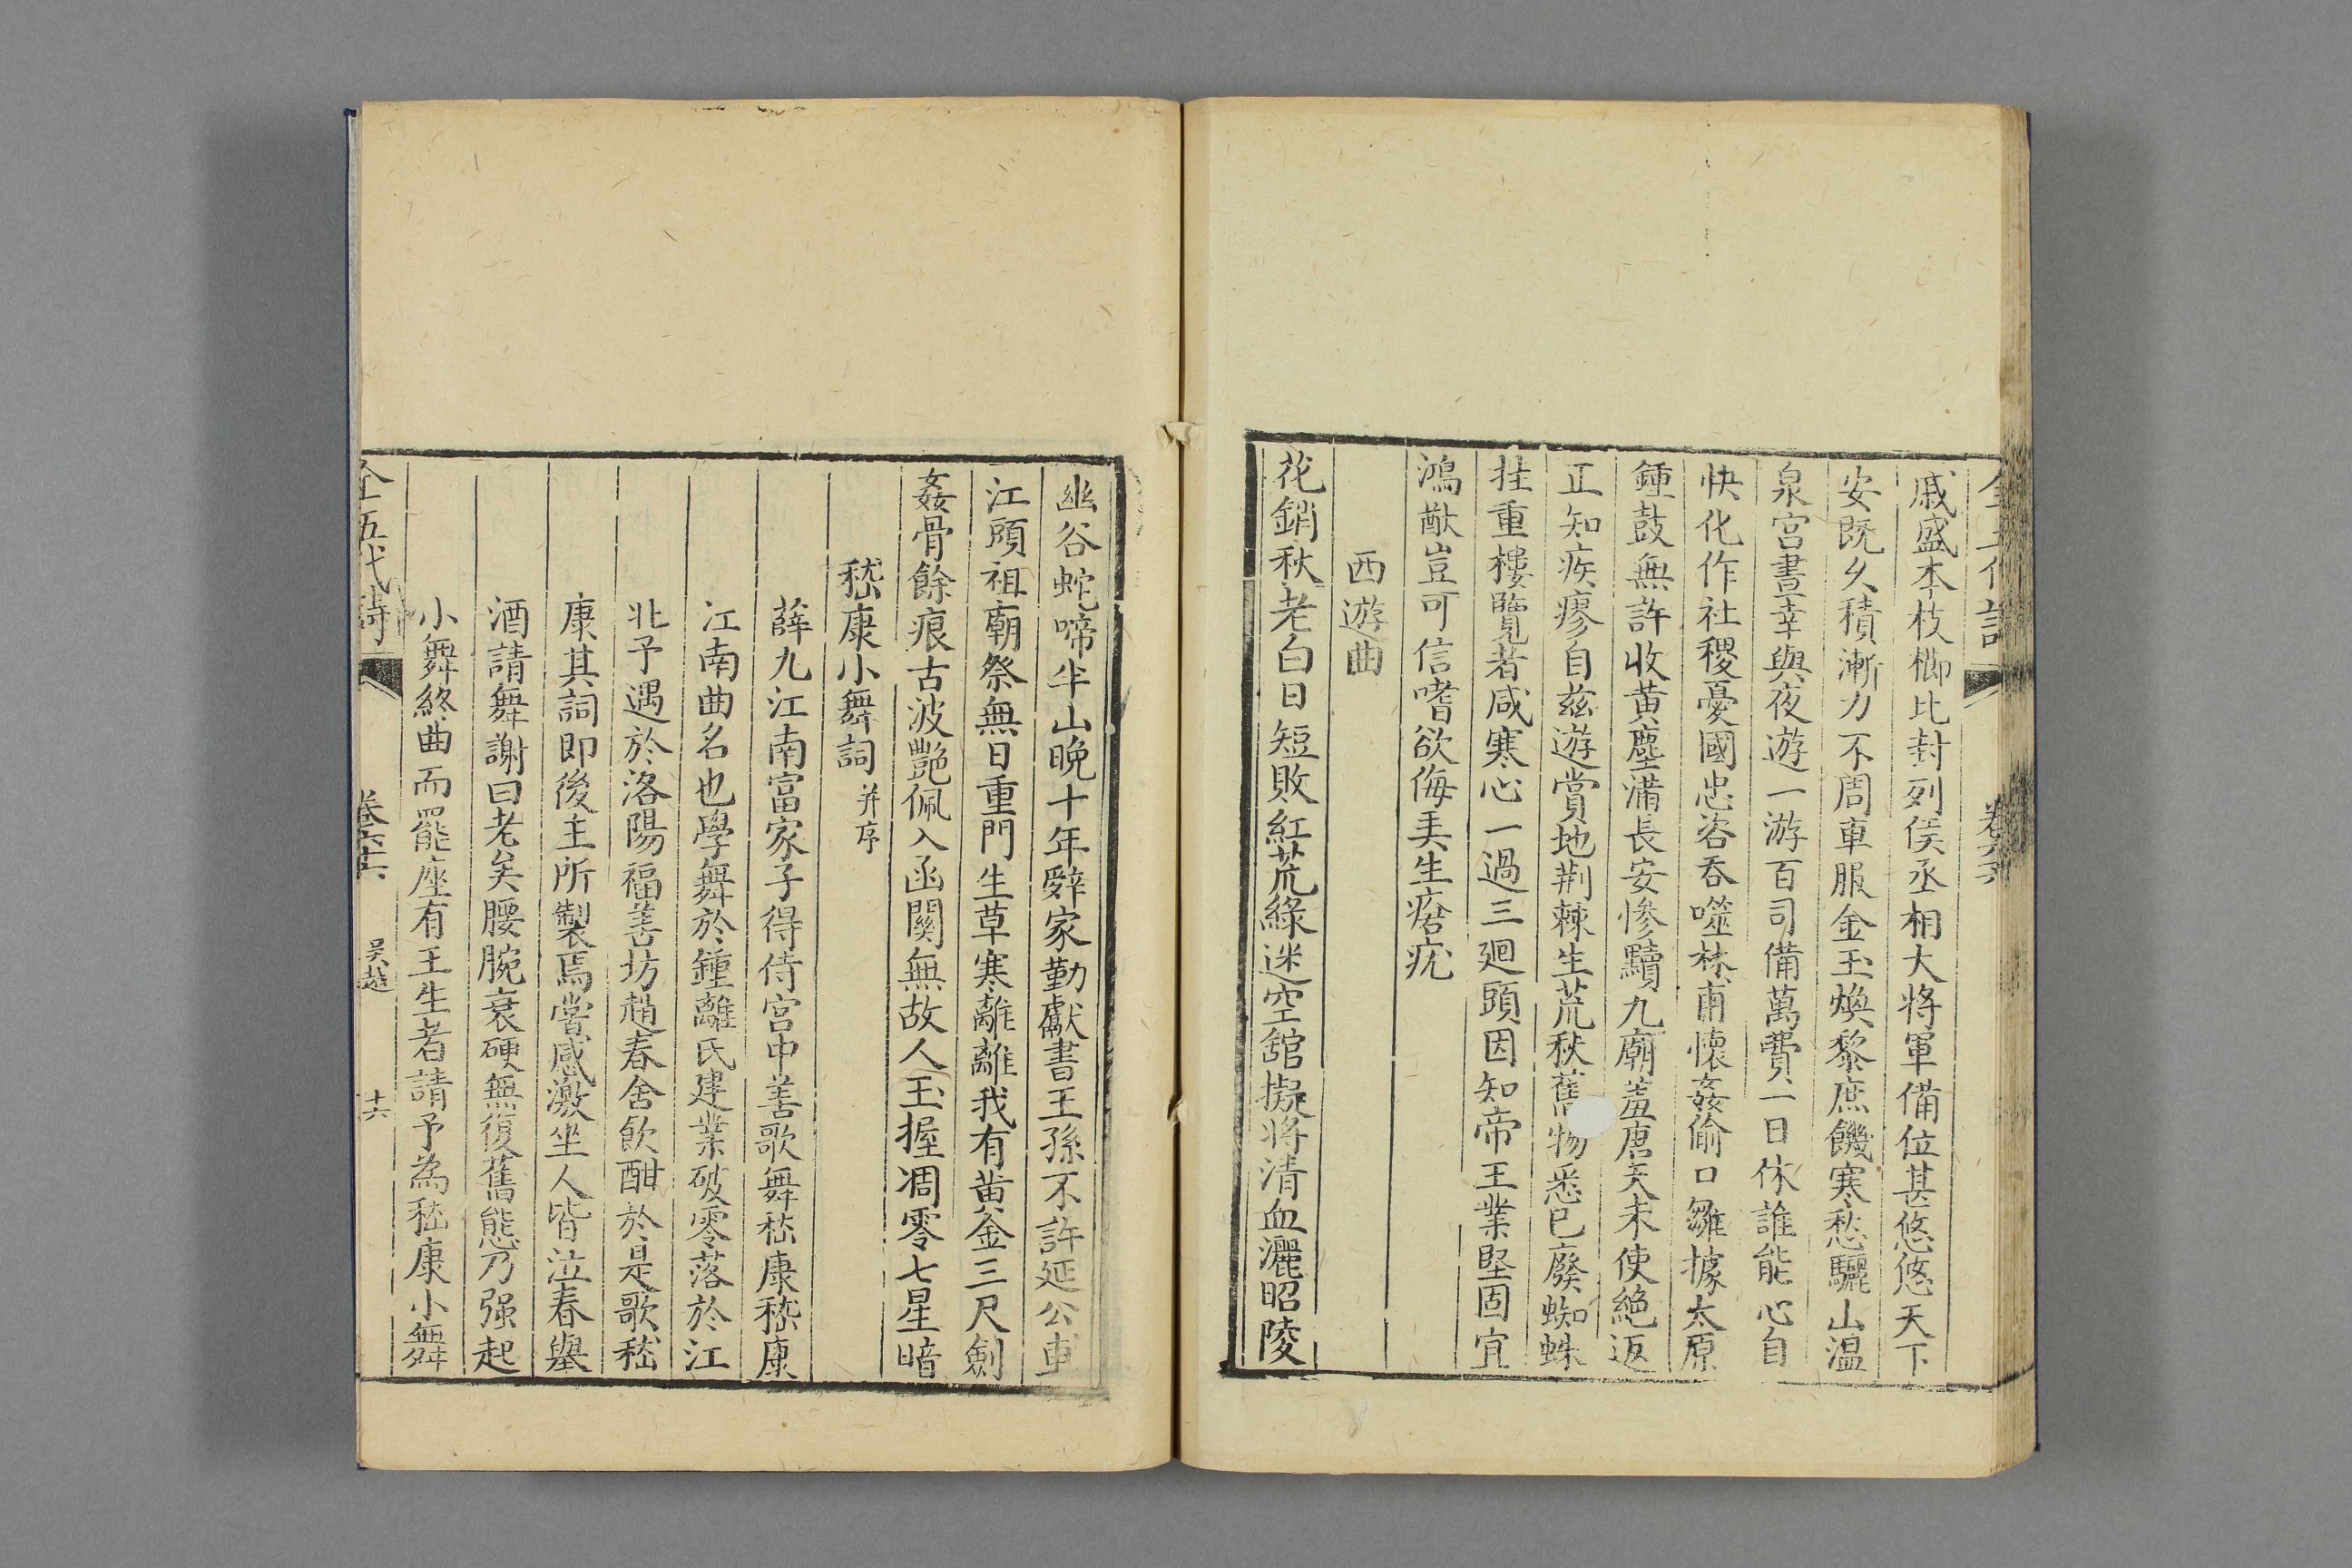 戚盛本枝櫛比封列侯丞相大將軍備位甚悠悠天下
安既久積漸力不周車服金玉煥黎庶饑寒愁驪山溫
泉宮晝幸與夜遊一游百司備萬費一日休誰能心自
快化作社稷憂國忠恣吞噬林甫懷姦偷口雛據太原
鍾鼓無許收黃塵滿長安慘黷九廟羞唐天未使絕返
正知疾瘳自茲遊賞地荆棘生荒秋舊物悉已廢蜘蛛
挂重樓覽者咸寒心一過三廻頭因知帝王業堅固宜
鴻猷豈可信嗜欲侮美生瘡疣
西遊曲
花銷秋老白日短敗紅荒綠迷空館擬將清血灑昭陵
幽谷蛇啼半山晚十年辭家勤獻書王孫不許延公車
江頭祖廟祭無日重門生草寒離離我有黃金三尺劍
姦骨餘痕古波艷佩入函關無故人玉握凋零七星暗
嵇康小舞詞并序
薛九江南富家子得侍宮中善歌舞嵇康嵇康
江南曲名也學舞於鍾離氏建業破零落於江
北予遇於洛陽福善坊趙春舍飲酣於是歌嵇
康其詞即後主所製焉嘗感激坐人皆泣春舉
酒請舞謝曰老矣腰腕衰硬無復舊態乃强起
小舞終曲而罷座有王生者請予為嵇康小舞
全五代詩 卷六十六 吳越 十六